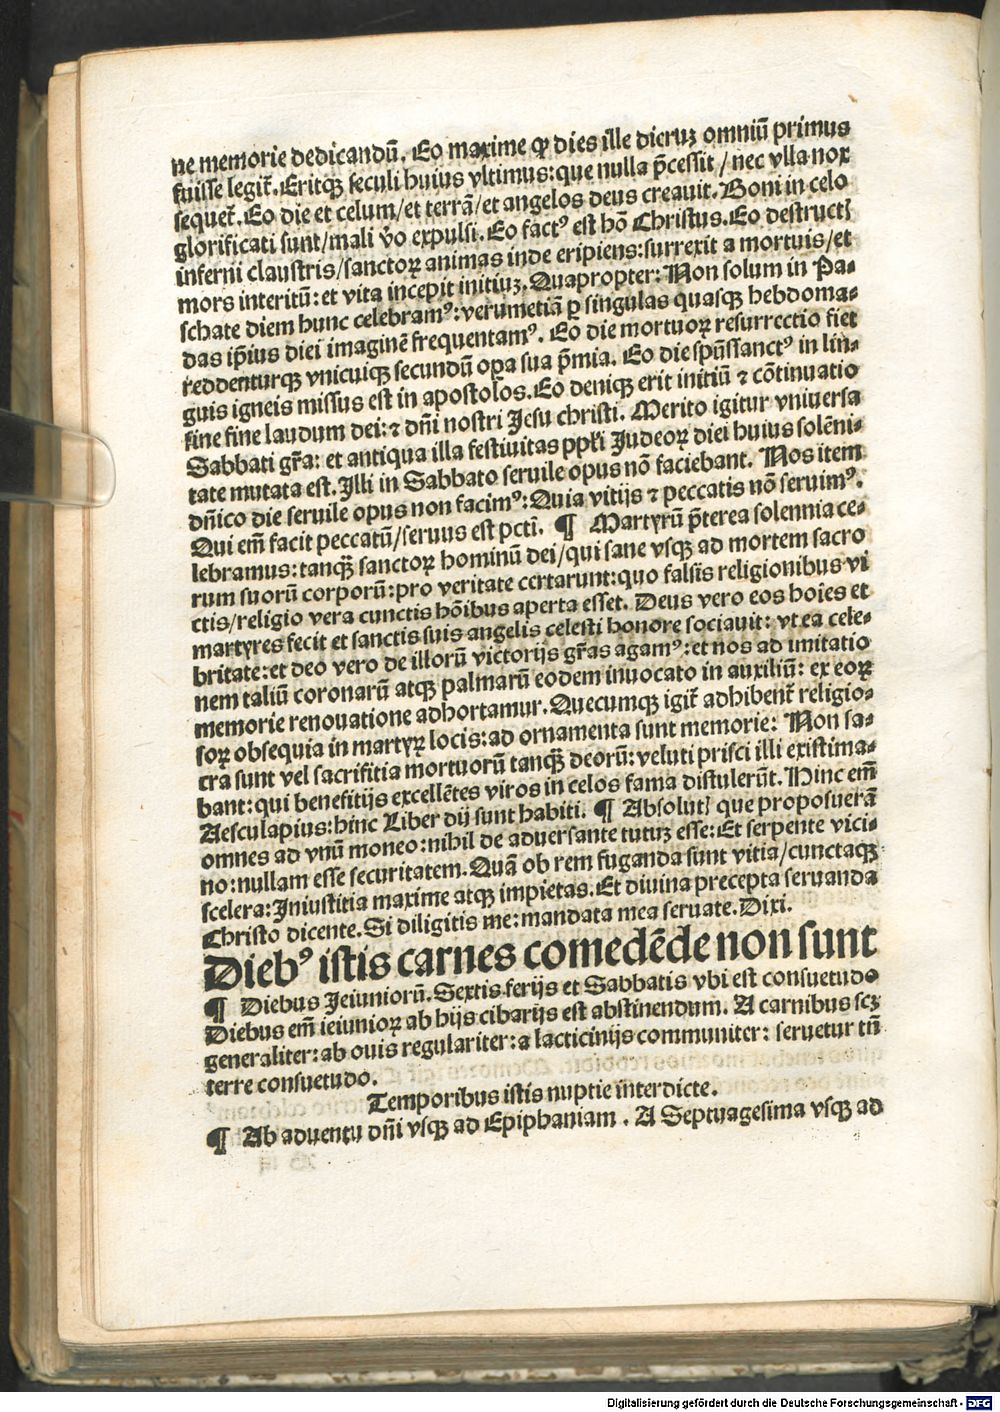 ne memorie dedicandũ. Eo maxime ꝙ dies ille dieruꝫ omniũ primus
fuisse legit̃. Eritqꝫ seculi huius vltimus: que nulla p̃cessit / nec vlla nox
sequet̃. Eo die et celum / et terrã / et angelos deus creauit. Boni in celo
glorificati sunt / mali ṽo expulsi. Eo factꝰ est hõ Christus. Eo destructꝭ
inferni claustris / sanctoꝝ animas inde eripiens: surrexit a mortuis / et
mors interitũ: et vita incepit initiuꝫ. Quapropter: Non solum in Pa-
schate diem hunc celebramꝰ: verumetiã ꝑ singulas quasqꝫ hebdoma-
das ip̃ius diei imaginẽ frequentamꝰ. Eo die mortuoꝝ resurrectio fiet
reddenturqꝫ vnicuiqꝫ secundũ oꝑa sua p̃mia. Eo die sp̃ũssanctꝰ in lin-
guis igneis missus est in apostolos. Eo deniqꝫ erit initiũ ⁊ cõtinuatio
sine fine laudum dei: ⁊ dñi nostri Jesu christi. Merito igitur vniuersa
Sabbati gr̃a: et antiqua illa festiuitas ppl̃i Judeoꝝ diei huius solẽni-
tate mutata est. Illi in Sabbato seruile opus nõ faciebant. Nos item
dñico die seruile opus non facimꝰ: Quia vitijs ⁊ peccatis nõ seruimꝰ.
Qui em̃ facit peccatũ / seruus est pcti̅. ¶ Martyrũ p̃terea solennia ce-
lebramus: tanqꝫ̃ sanctoꝝ hominũ dei / qui sane vsqꝫ ad mortem sacro
rum suorũ corporũ: pro veritate certarunt: quo falsis religionibus vi
ctis / religio vera cunctis hõibus aperta esset. Deus vero eos hoies et
martyres fecit et sanctis suis angelis celesti honore sociauit: vt ea cele-
britate: et deo vero de illorũ victorijs gr̃as agamꝰ: et nos ad imitatio
nem taliũ coronarũ atqꝫ palmarũ eodem inuocato in auxiliũ: ex eoꝝ
memorie renouatione adhortamur. Quecumqꝫ igit̃ adhibent̃ religio-
soꝝ obsequia in martyꝝ locis: ad ornamenta sunt memorie: Non sa-
cra sunt vel sacrifitia mortuorũ tanqꝫ̃ deorũ: veluti prisci illi existima-
bant: qui benefitijs excellẽtes viros in celos fama distulerũt. Hinc em̃
Aesculapius: hinc Liber dij sunt habiti. ¶ Absolutꝭ que proposuerã
omnes ad vnũ moneo: nihil de aduersante tutuꝫ esse: Et serpente vici-
no: nullam esse securitatem. Quã ob rem fuganda sunt vitia / cunctaqꝫ
scelera: Iniustitia maxime atqꝫ impietas. Et diuina precepta seruanda
Christo dicente. Si diligitis me: mandata mea seruate. Dixi.
Diebꝰ istis carnes comedẽde non sunt
¶ Diebus Jeiuniorũ. Sextis ferijs et Sabbatis vbi est consuetudo
Diebus em̃ ieiunioꝝ ab hijs cibarijs est abstinendum. A carnibus scꝫ
generaliter: ab ouis regulariter: a lacticinijs communiter: seruetur tñ
terre consuetudo.
Temporibus istis nuptie interdicte.
¶ Ab aduentu dñi vsqꝫ ad Epiphaniam. A Septuagesima vsqꝫ ad
Digitalisierung gefördert durch die Deutsche Forschungsgemeinschaft - DFG